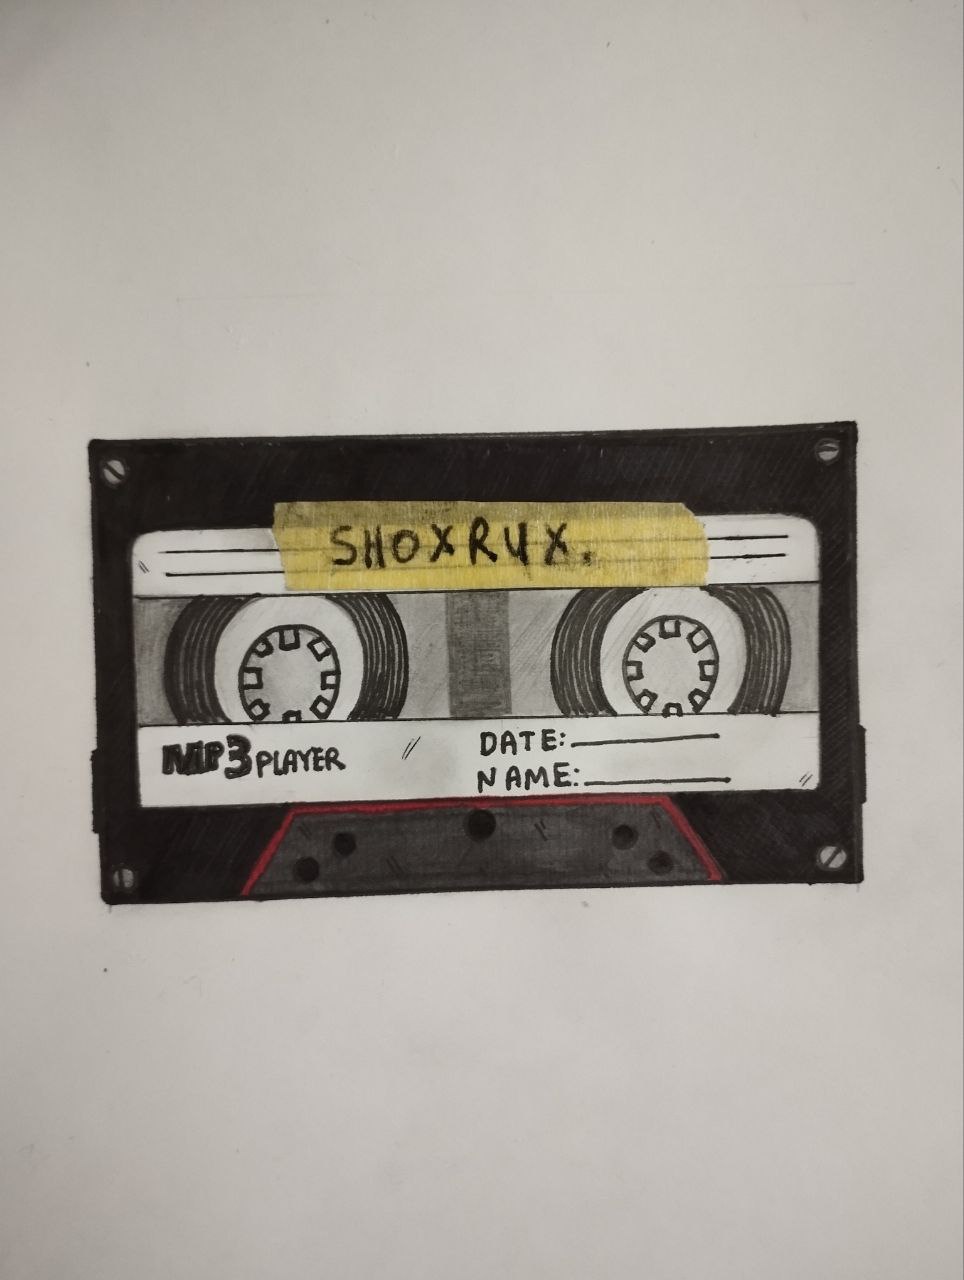 SHOXRUX.
MP3 PLAYER
DATE:
NAME: